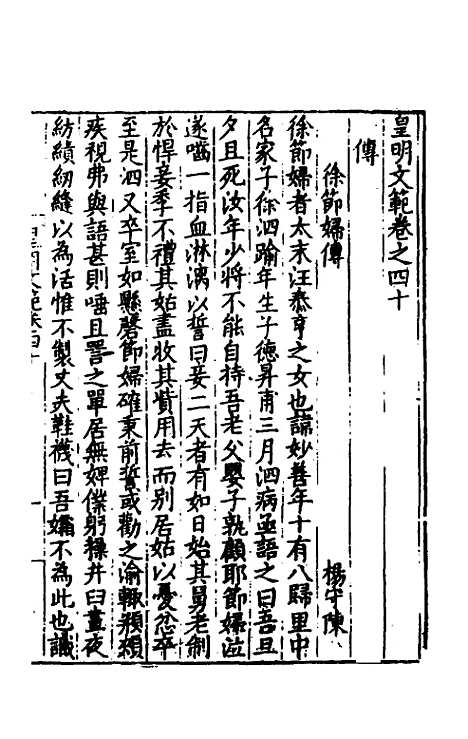 皇明文範卷之四十
傳
徐節婦傳
楊守陳
徐節婦者太末汪泰亨之女也諱妙善年十有八歸里中
名家子徐泗踰年生子德昇甫三月泗病亟語之曰吾旦
夕且死汝年少將不能自持吾老父嬰子孰顧耶節婦泣
遂嚙一指血淋漓以誓曰妾二天者有如日始其舅老制
於悍妾季不禮其姑盡收其貲用去而別居姑以憂忿卒
至是泗又卒室如縣磬節婦確秉前誓或勸之渝輒頩顏
疾視弗與語甚則唾且詈之單居無婢僕躬操井臼晝夜
紡績紉縫以為活惟不製丈夫鞋襪曰吾孀不為此也議
皇明文範卷四十